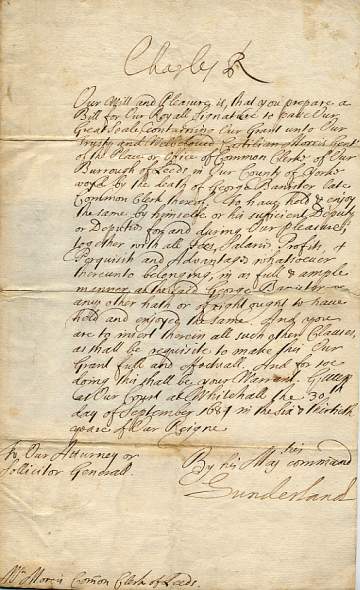 Charles R
Our Will and Pleasure is, that you prepare a
Bill for Our Royall Signature to passe Our
Great Seale, containing Our Grant unto Our
Trusty and Welbeloved Castilian Morris Gent
of the Place or Office of Common Clerke of Our
Burrough of Leeds, in Our County of Yorke
voyd by the death of George Banister late
Common Clerk thereof, To have, hold & enjoy
the same by himselfe or his sufficient Deputy
or Deputies for and during Our pleasure,
together with all Fees, Salaries, Profits, &
Perquisits and Advantages whatsoever
thereunto belonging, in as full & ample
manner, as the said George Banister or
any other hath or of right ought to have
held and enjoyed the same. And you
are to insert therein all such other Clauses,
as shall be requisite to make this Our
Grant full and effectuall. And for soe
doing this shall be your Warrant. Given
at Our Court at Whitehall the 30th
day of September 1684 in the six & thirtieth
yeare of Our Reigne
To Our Attorney or
Sollicitor Generall.
By his Maties command
Sunderland
Mr Morris Comon Clerk of Leeds.